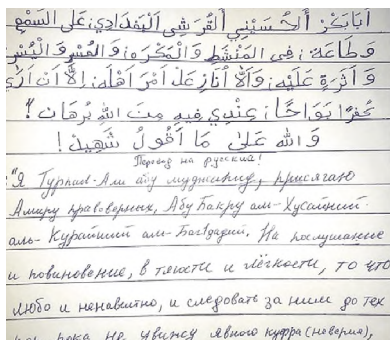 أَبَابَكْرٍ الْحُسَيْنِي الْقُرَشِي الْبَغْدَادِي، عَلَى السَّمْعِ
وَطَاعَة؛ فِي الْمَنْشَطِ وَالْمَكْرَهِ؛ وَالْعُسْرِ وَالْيُسْرِ
وَأَثَرَةٍ عَلَيْهِ؛ وَأَلَّا أُنَازِعَ الْأَمْرَ أَهْلَهُ؛ إِلَّا أَنْ أَرَى
كُفْرًا بَوَاحًا؛ عِنْدِي فِيهِ مِنَ اللهِ بُرْهَان؛
وَاللهُ عَلَىٰ مَا أَقُولُ شَهِيد!
Перевод на русский!
"Я Турпал-Али абу муджахид, присягаю
Амиру правоверных, Абу Бакру ал-Хусайний
аль-Курайший ал-Багдадий, На послушание
и повиновение, в тяготи и лёгкости, то что
любо и ненавистно, и следовать за ним до тех
пор пока не увижу явного куфра (неверия),